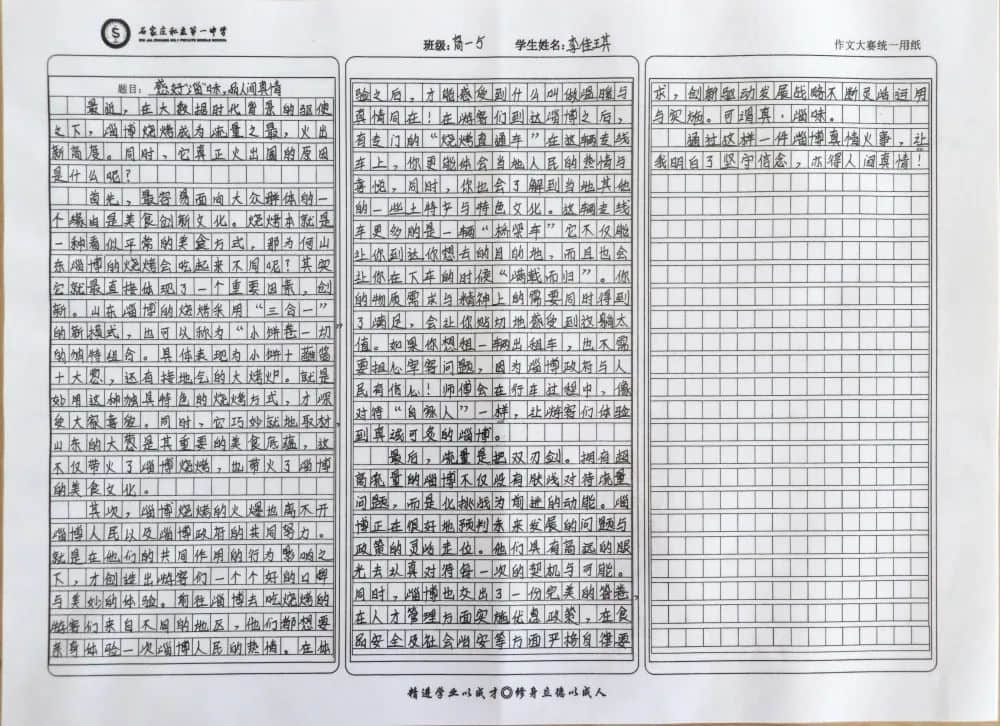 石家庄私立第一中学
班级：高一5 学生姓名：李佳琪
作文大赛统一用纸
题目：感好"淄"味，品人间真情
最近，在大数据时代背景的驱使
之下，淄博烧烤成为流量之最，火出
新高度。同时，它真正火出圈的原因
是什么呢？
首先，最容易面向大众群体的一
个缘由是美食创新文化。烧烤本就是
一种看似平常的美食方式，那为何山
东淄博的烧烤会吃起来不同呢？其实
它就最直接体现了一个重要因素，创
新。山东淄博的烧烤采用"三合一"
的新模式，也可以称为"小饼卷一切"
的独特组合。具体表现为小饼＋蘸酱
＋大葱，还有接地气的大烤炉。就是
妙用这种独具特色的烧烤方式，才深
受大家喜爱。同时，它巧妙就地取材，
山东的大葱是其重要的美食底蕴，这
不仅带火了淄博烧烤，也带火了淄博
的美食文化。
其次，淄博烧烤的火爆也离不开
淄博人民以及淄博政府的共同努力。
就是在他们的共同作用的行为影响之
下，才创造出游客们一个个好的口碑
与美妙的体验。前往淄博去吃烧烤的
游客们来自不同的地区，他们都想要
亲身体验一次淄博人民的热情。在体
验之后，才能感受到什么叫做温暖与
真情同在！在游客们到达淄博之后，
有专门的"烧烤直通车"在这辆专线
车上，你更能体会当地人民的热情与
喜悦，同时，你也会了解到当地其他
的一些土特产与特色文化。这辆专线
车更多的是一辆"桥梁车"它不仅能
让你到达你想去的目的地，而且也会
让你在下车的时候"满载而归"。你
的物质需求与精神上的需要同时得到
了满足，会让你贴切地感受到这躺太
值。如果你想租一辆出租车，也不需
要担心宰客问题，因为淄博政府与人
民有信心！师傅会在行车过程中，像
对待"自家人"一样，让游客们体验
到真诚可贵的淄博。
最后，流量是把双刃剑。拥有超
高流量的淄博不仅没有肤浅对待流量
问题，而是化挑战为前进的动能。淄
博正在很好地预判未来发展的问题与
政策的灵活走位。他们具有高远的眼
光去认真对待每一次的契机与可能。
同时，淄博也交出了一份完美的答卷，
在人才管理方面实施优惠政策，在食
品安全及社会治安等方面严格自律要
求，创新驱动发展战略不断灵活运用
与实施。可谓真·淄味。
通过这样一件淄博真情火事，让
我明白了坚守信念，亦得人间真情！
精进学业以成才◎修身立德以成人